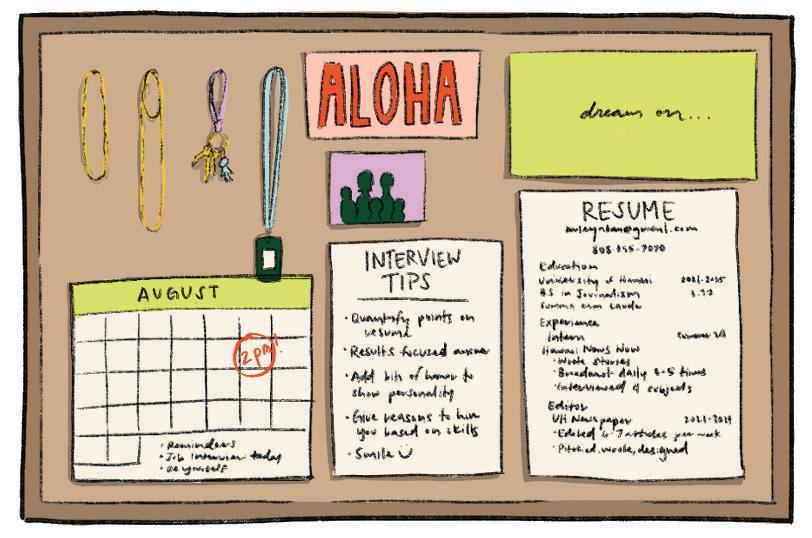 ALOHA
dream on...
AUGUST
2pm!
• Reminders
• Job Interview today
• Be yourself
INTERVIEW
TIPS
• Quantify points on
resume
• Results focused answer
• Add bits of humor to
show personality
• Give reasons to hire
you based on skills
• Smile
RESUME
Education
University of Hawaii
B.S in Journalism
Summa cum Laude
Experience
Intern
Hawaii News Now
• Wrote stories
• Broadcast daily 3-5 times
• Interviewed subjects
Editor
UH Newspaper
• Edited 6-7 articles per week
• Pitched, wrote, designed